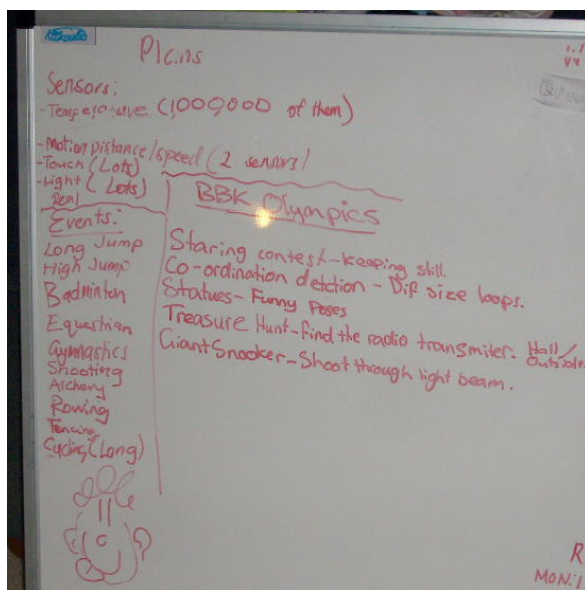 Plans
Sensors:
- Temperature (1,000,000 of them)
- Motion Distance/speed (2 sensors)
- Touch (Lots)
- Light (Lots)
Real
Events:
Long Jump
High Jump
Badminton
Equestrian
Gymnastics
Shooting
Archery
Rowing
Fencing
Cycling (Long)
BBK Olympics
Staring contest - keeping still.
Co-ordination detction - Dif size loops.
Statues - Funny Poses
Treasure Hunt - find the radio transmiter. Hall/
Outside.
Giant Snooker - Shoot through light beam.
R
MON:1